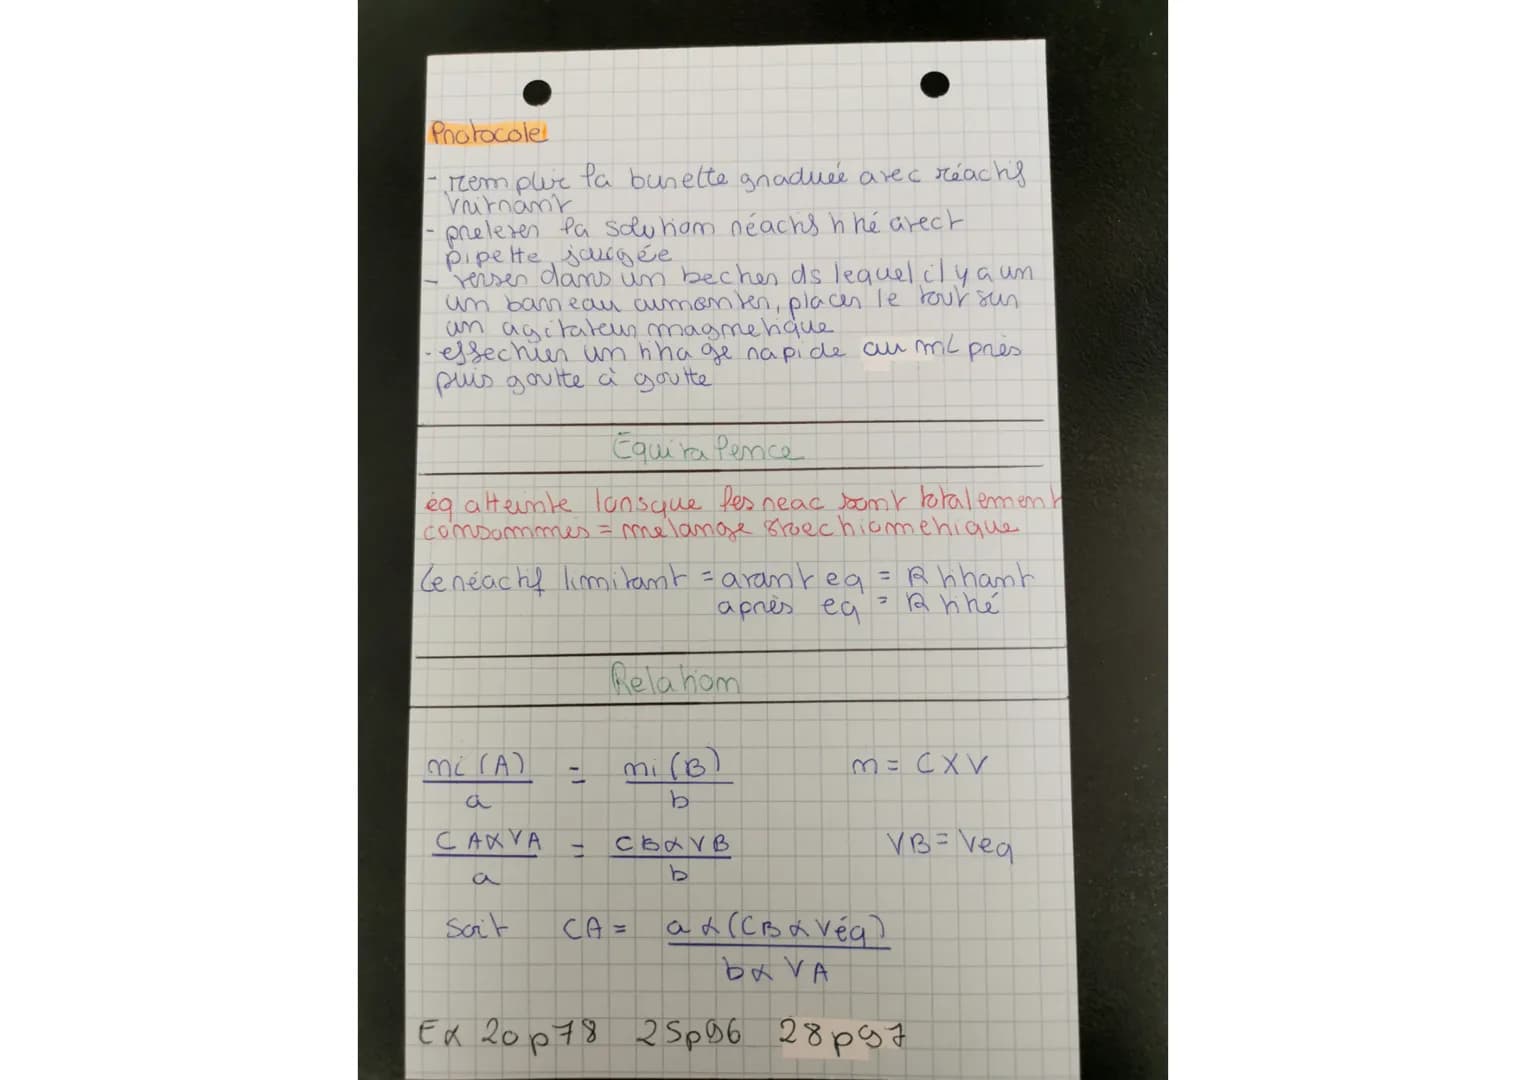 Protocole
- remplir la burette graduée avec réactif
titrant
- prelever la solution réactif titré avect
pipette jaugée
- verser dans un becher ds lequel il y a un
un barreau aimanter, placer le tout sur
un agitateur magnetique
- effectuer un titrage rapide au mL près
puis goutte à goutte
Equivalence
éq atteinte lorsque les reac sont totalement
consommés = melange stoechiometrique
Le réactif limitant = avant eq = R titrant
après eq = R titré
Relation
ni(A)/a = ni(B)/b n = C x V
CA x VA/a = CB x VB/b VB = Veq
Soit CA = a x (CB x Véq)/b x VA
Ex 20 p78 25p96 28p97